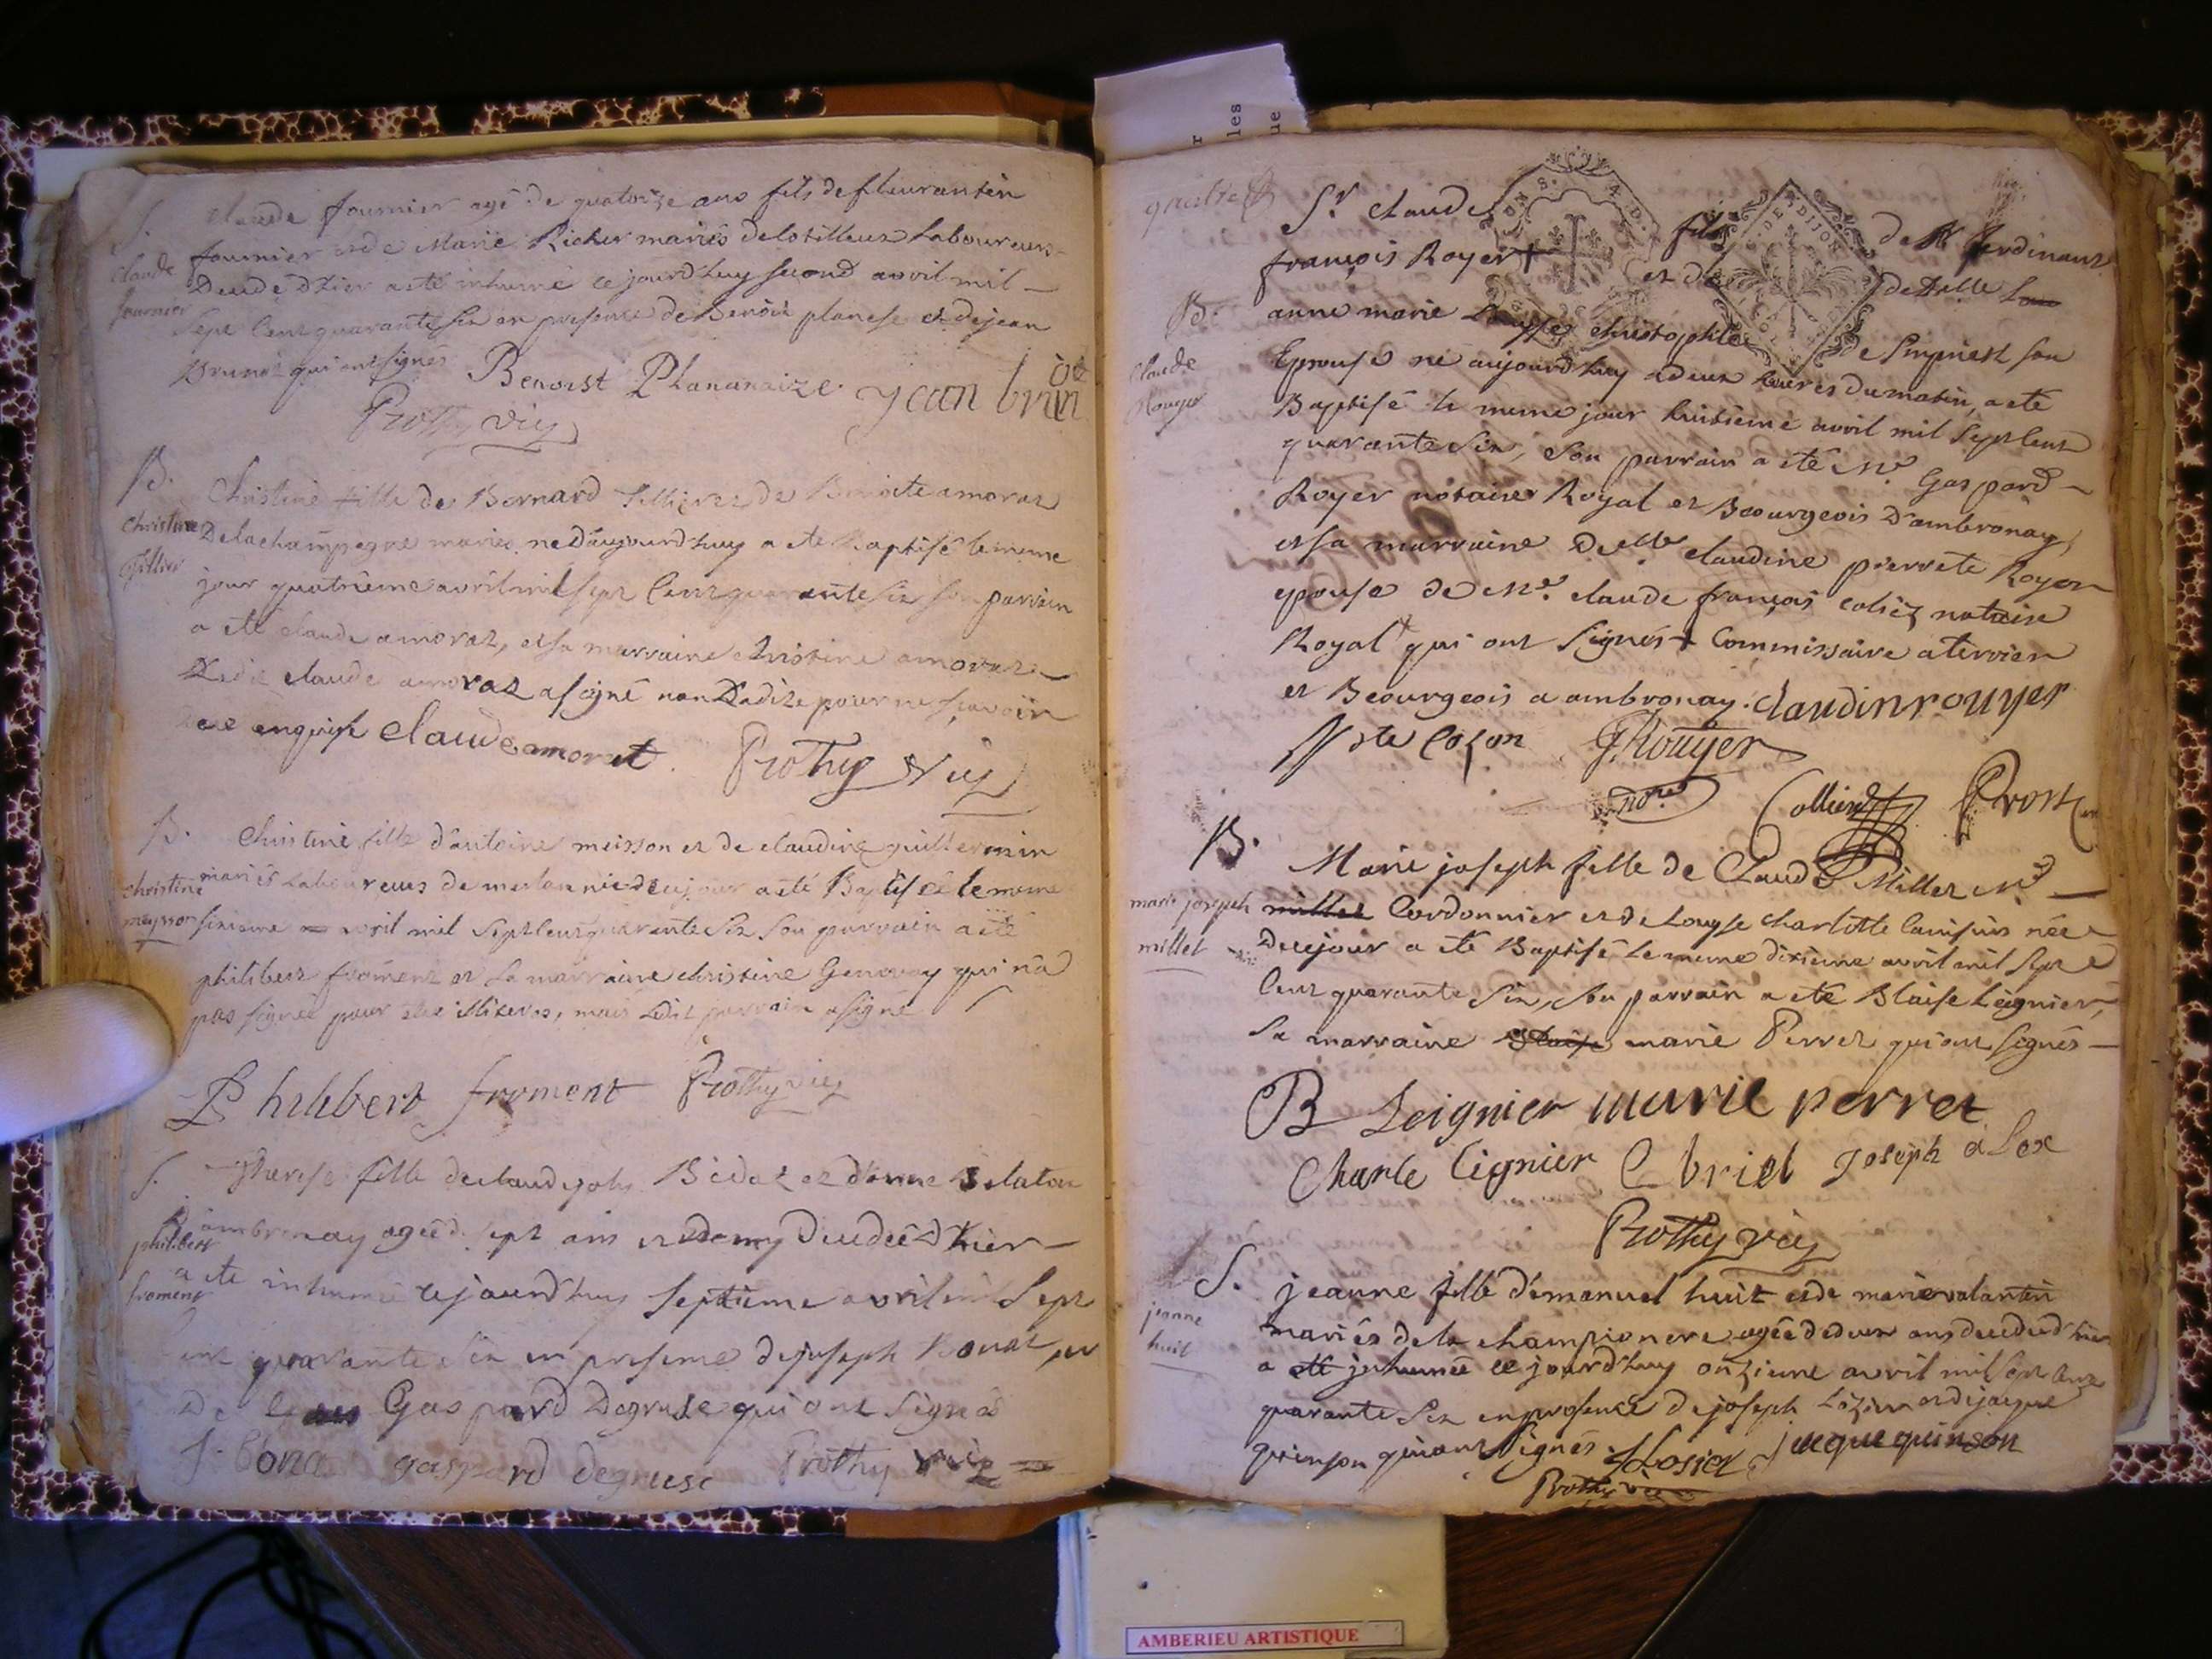 S. Claude fournier agé de quatorze ans fils de fleurantin
Claude fournier et de Marie Richer mariés laboureurs
fournier Decedé d'hier a eté inhumé ce jourd'huy second avril mil
sept cent quarante six en presence de Benoit planese et de jean
brunot qui ont signés Benoist Plananaize jean brunot
Prothy vic
B. Christine fille de Bernard et de amoraz
Christine Delachampagne mariés née d'aujourd'huy a eté baptisé le meme
jour quatrieme avril mil sept cent quarante six son parrain
a eté claude amoraz, et sa marraine christine amoraz
Ledit claude amoraz a signé non Ladite pour ne scavoir
de ce enquise Claude amorat Prothy vic
B. Christine fille d'antoine meisson et de claudine guillermin
christine mariés laboureurs de ce jour a eté Baptisée le meme
meysson sixieme avril mil sept cent quarante six son parrain a eté
philibert froment et sa marraine christine Genevay qui n'a
pas signée pour etre illiteres, mais Ledit parrain a signé
Philibert froment Prothy vic
S. Therese fille de Bidat et d'anne
ambronay agée de sept ans et demy Decedée d'hier
philibert
froment a eté inhumée ce jourd'huy septieme avril mil sept
cent quarante six en presence de joseph Bonat, et
De Gaspard Degruse qui ont signés
J. Bona gaspard degruse Prothy vic
quatre
Sr. Claude fils de Mr. ferdinant
françois Royer + et de detelle
B. anne marie christophle de son
Claude Epouse né aujourd'huy a deux heures du matin, a eté
Rouyer Baptisé le meme jour huitieme avril mil sept cent
quarante six, son parrain a eté Mr. Gaspard
Royer notaire Royal et Bourgeois d'ambronay,
et sa marraine Delle claudine pierrete Royer
epouse de Mr. claude françois notaire
Royal qui ont signés + Commissaire a terrier
et Bourgeois a ambronay. Claudin rouyer
G. Rouyer
nore Collier Prost
B. Marie joseph fille de Claude Millet Md
marie joseph millet Cordonnier et de Louyse charlotte née
millet De ce jour a eté Baptisé le meme dixieme avril mil sept
cent quarante six, son parrain a eté Blaise Leignier,
sa marraine Blaise marie Perret qui ont signés
B Leignier marie perret
Charle lignier C briel Joseph
Prothy vic
S. jeanne fille d'emanuel huit et de marie valantin
jeanne mariés de la championere agée de deux ans decedée d'hier
huit a eté inhumée ce jourd'huy onzieme avril mil sept cent
quarante six en presence de joseph et de jacque
quinson qui ont signés jacque quinson
Prothy vic
AMBERIEU ARTISTIQUE
les
ue
r